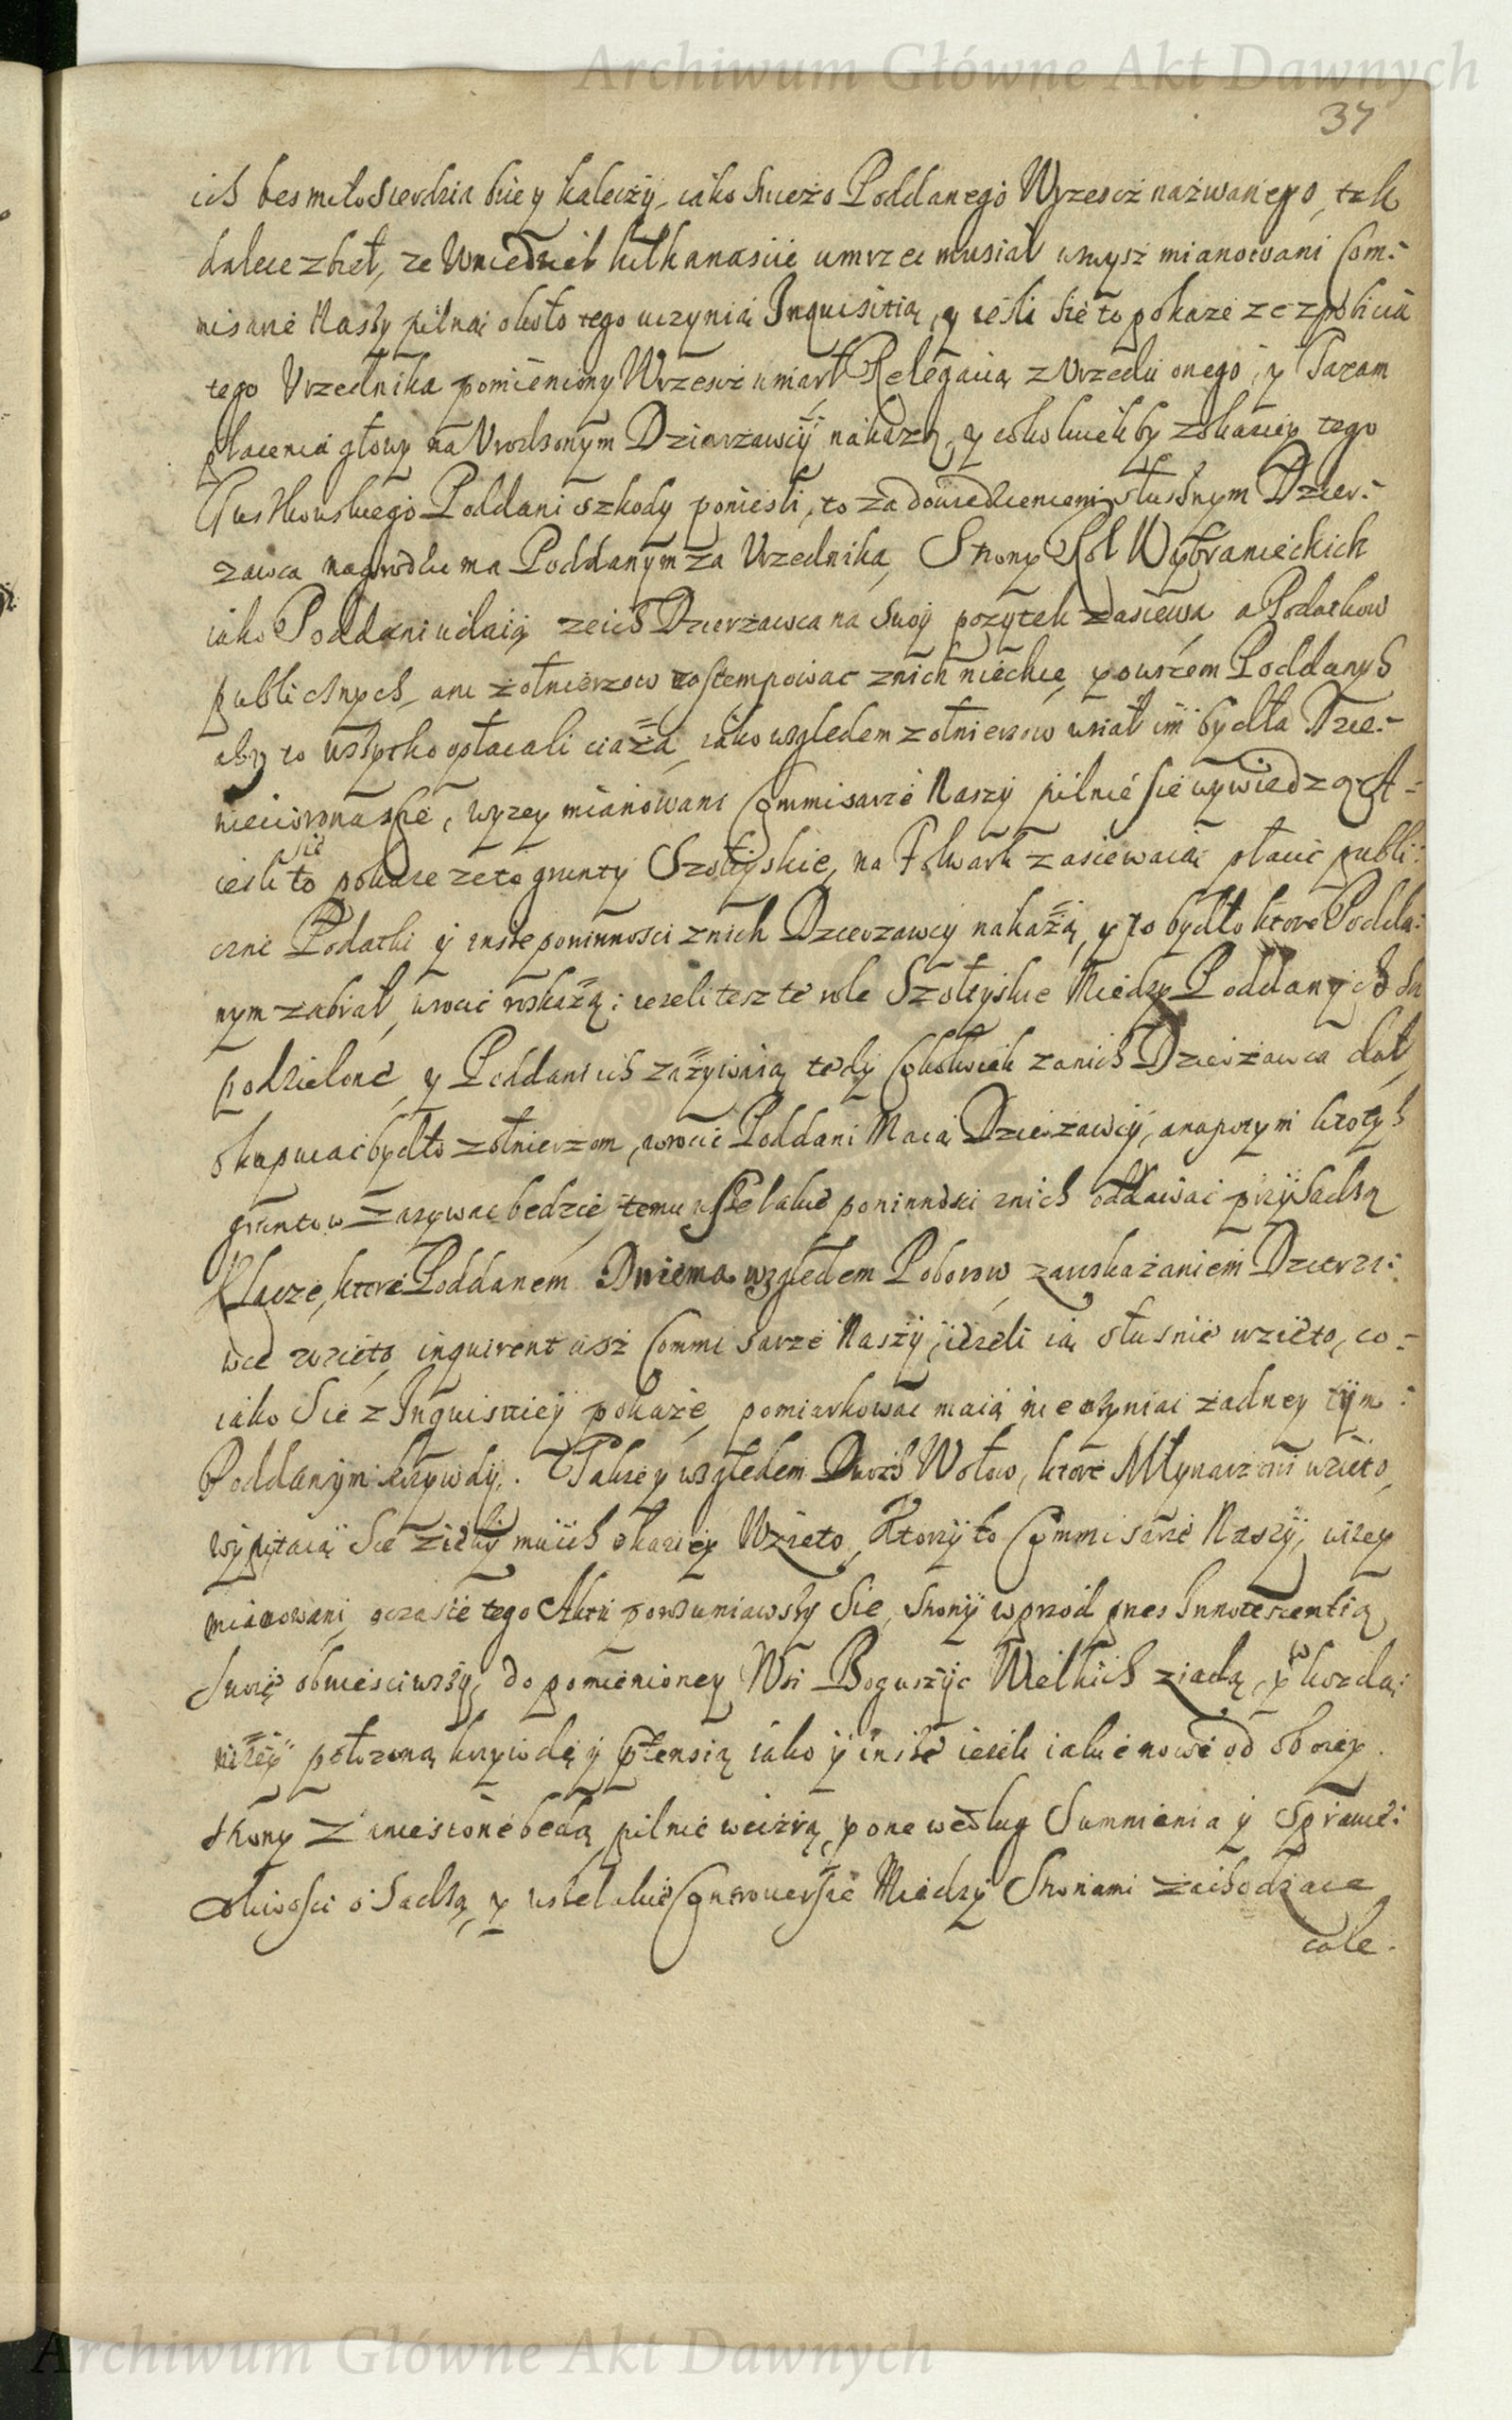 Archiwum Główne Akt Dawnych
37
ich bes miłosierdzia biie y kaleczÿ, iako swiezo Poddanego Wrzescż nażwanego, tak
dalece zbieł, ze w niedziel kilkanascie umrzec musiał wwysz mianowani Com:
misarie Naszy pilną około tego uczynią Inquisitią, y iesli sie to pokaze ze z pobicia
tego Vrzednika pomieniony Wrzescż umarł Relegacią z Vrzedu onego, y Paxam
płacenia głowy na Vrodzonym Dzierzawcÿ nakazą, y cokolwiekby z okaziey tego
Poddani szkody poniesli, to za dowiedzieniem słusznym Dzier:
zawca nagrodzic ma Poddanym za Vrzednika, Strony Rol Wybranieckich
iako Poddani udaią, ze ich Dzierzawca na swoy pozytek zasiewa a Podatkow
publicznych, ani żołnierzow zastempowac z nich niechce, y owszem Poddanych
aby to wszytko opłacali ciąża, iako wzgledem zołnierzow wział im bydła Trze:
, wyzey mianowani Commisarze Naszy pilnie sie wywiedzą, A
iesli sie to pokaze ze te grunty Szołtyskie, na Folwark zasiewaią płacic publi:
czne Podatki y insze powinnosci z nich Dzierzawcy nakażą, y to bydło ktore Podda:
nym zabrał, wrocic wskażą: iezeli tesz te role Szołtyskie Miedzy Poddanych są
podzielone, y Poddani ich zażywaią tedy Cokolwiek za nich Dzierżawca dał,
okupuiac bydło zołnierzom, wrocic Poddani Maią Dzierżawcÿ, a napotym kto tych
gruntow zazywac bedzie, temu wszelakie powinnosci z nich oddawac przysadzą
Klacze, ktore Poddanem Dwiema wzgledem Poborow, za wskazaniem Dzierza:
wce wzieto, inquirent asz Commisarze Naszÿ, iezeli ią słusnie wzieto, co
iako sie z Inquisitiey pokaże, pomiarkowac maią nie czyniac żadney tÿm
Poddanÿm krzywdÿ. Takze y wzgledem Dwoch Wołow, ktore Młynarzowi wzieto,
wypÿtaią sie z iakiÿ ich okaziey wzieto, Ktorzÿ to Commisarze Naszÿ, wizey
mianowani, o czasie tego Aktu porozumiawszy sie, strony wprzod przes Innotescentią
swoię obwiesciwszy, do pomienioney Wsi Boguszÿc Wielkich ziadą, y w kożdą
nizeÿ położoną krzywdę ÿ pretensią iako ÿ insze iezeli iakie nowe od oboiey
strony zaniesione bedą, pilnie weizrą, y one według Sumnienia ÿ Sprawie:
dliwosci osadzą, y wszelakie Controuersie Miedzy Stronami zachodzące
cale.
Archiwum Główne Akt Dawnych